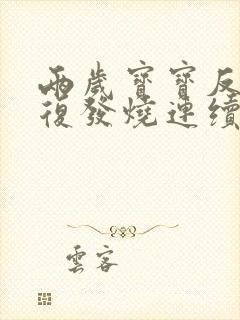 兩歲寶寶反
復發燒連續
雲客